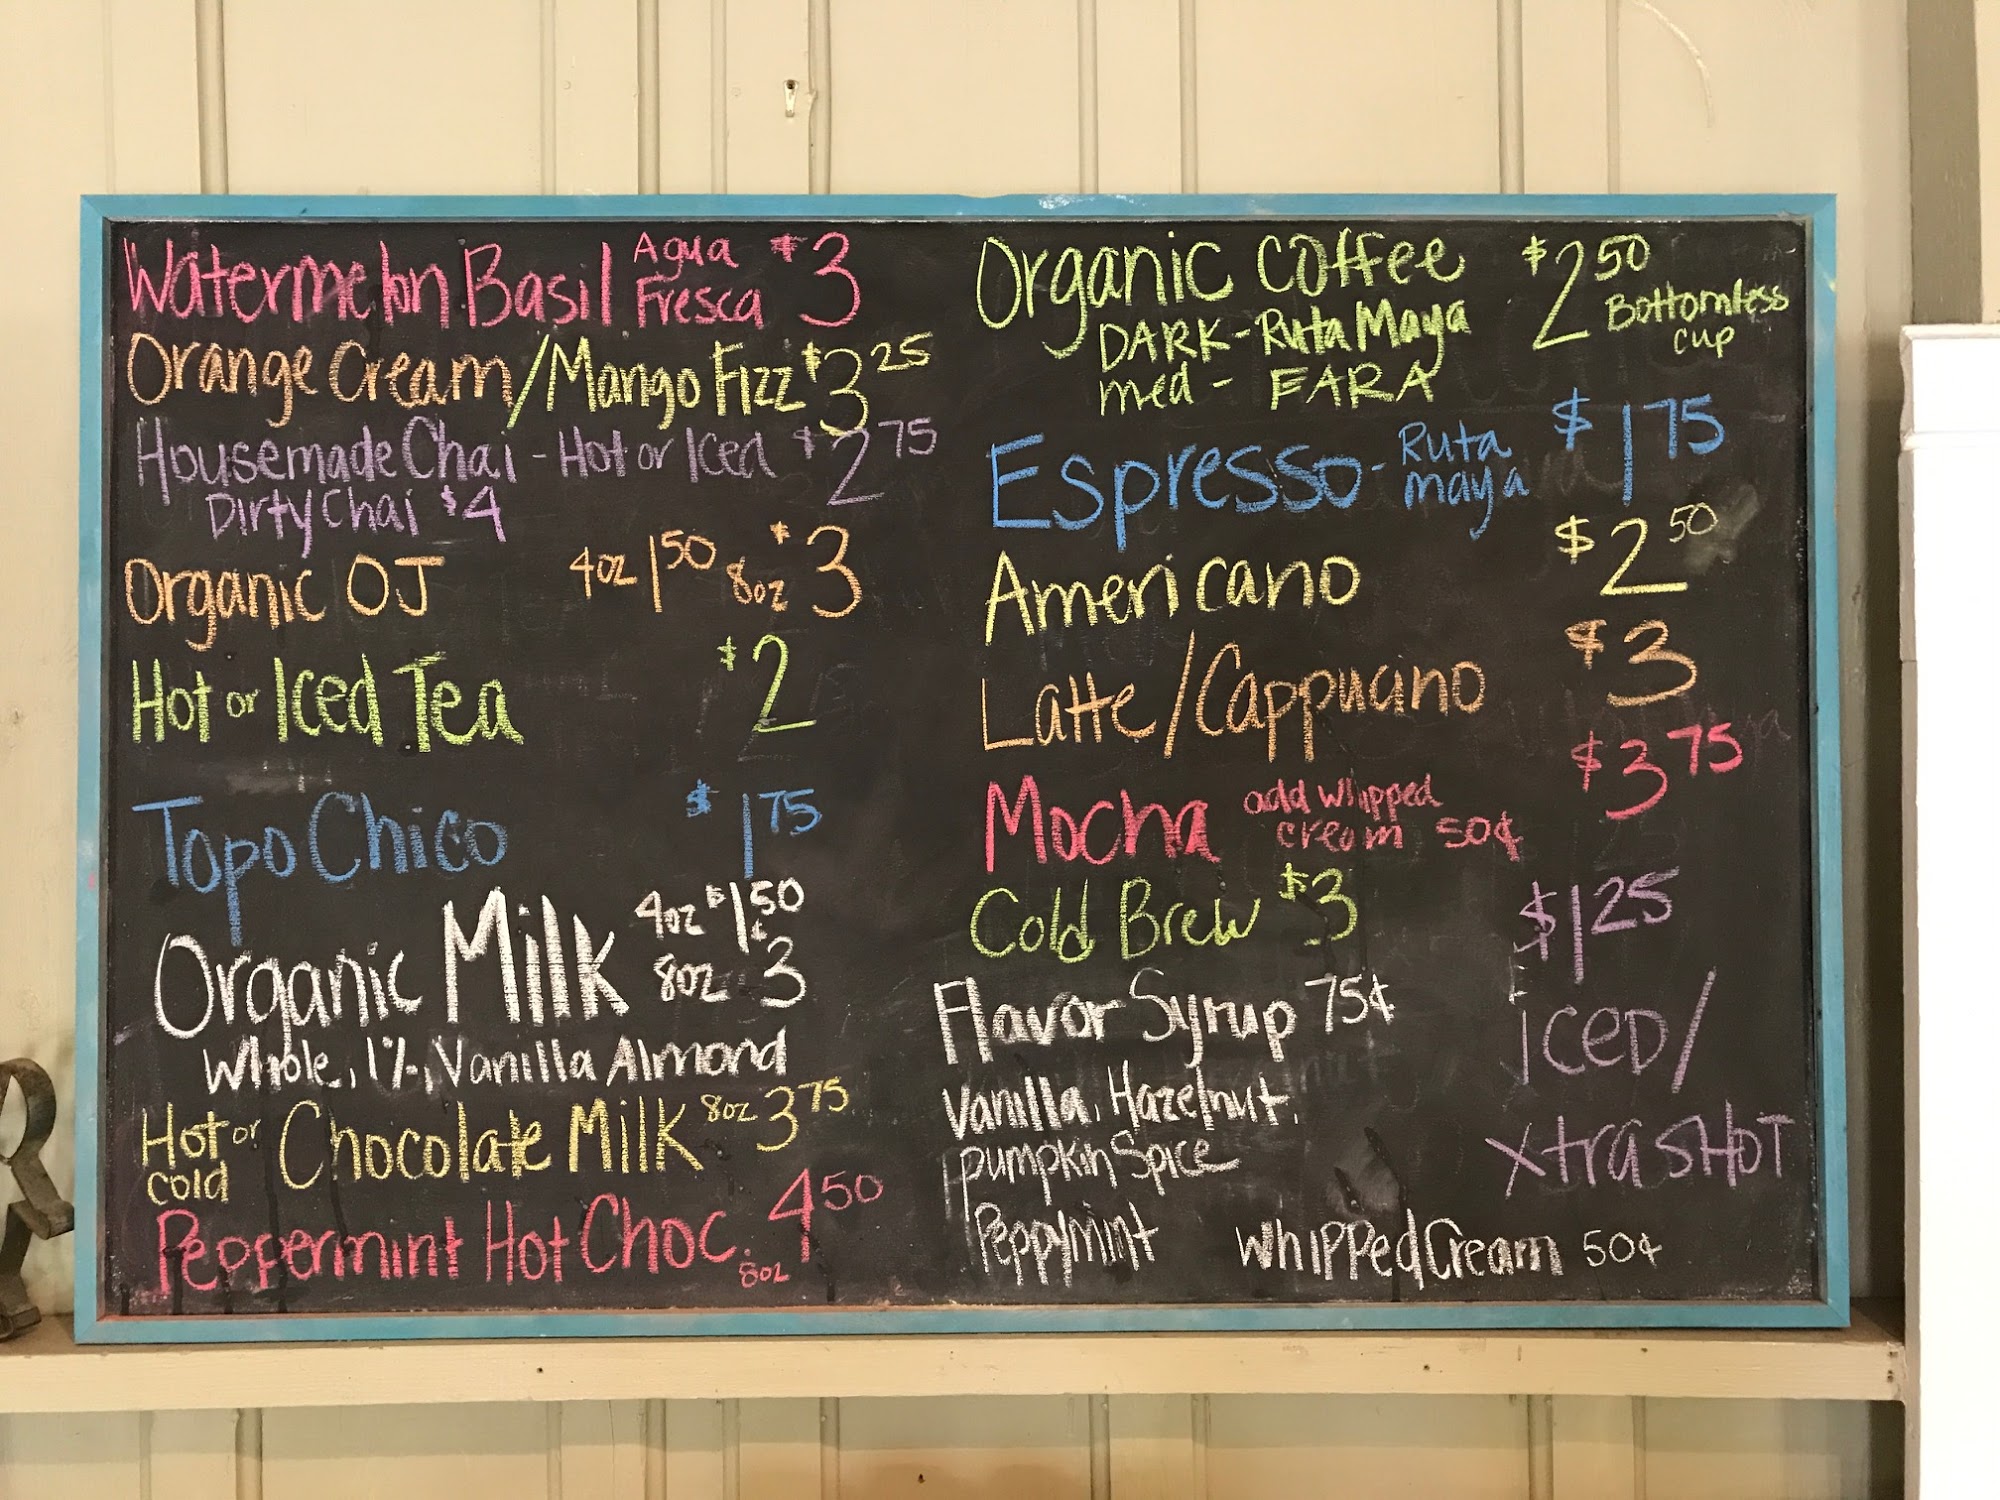 Watermelon Basil Agua Fresca $3
Orange Cream/Mango Fizz $3 25
Housemade Chai - Hot or Iced $2 75
Dirty Chai $4
Organic OJ 4oz 1 50 8oz $3
Hot or Iced Tea $2
Topo Chico $1 75
Organic Milk 4oz $1 50
8oz $3
Whole, 1%, Vanilla Almond
Hot or cold Chocolate Milk 8oz 3 75
Peppermint Hot Choc. 8oz 4 50
Organic Coffee $2 50 Bottomless cup
DARK - Ruta Maya
med - FARA
Espresso - Ruta maya $1 75
Americano $2 50
Latte/Cappucino $3
Mocha add whipped cream 50¢ $3 75
Cold Brew $3
Flavor Syrup 75¢
Vanilla, Hazelnut,
pumpkin Spice
Peppymint
$1 25
iced/
xtra sHoT
whipped Cream 50¢